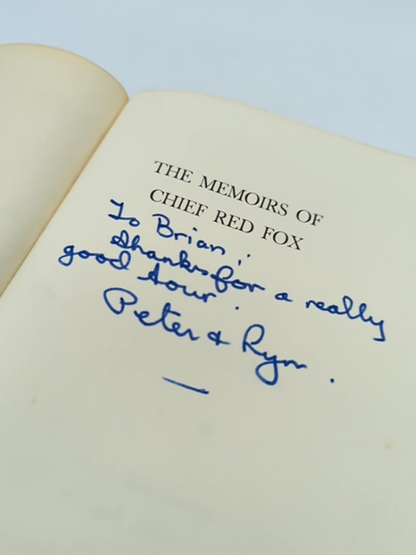 THE MEMOIRS OF
CHIEF RED FOX
To Brian,:
thanks for a really
good tour.
Peter &